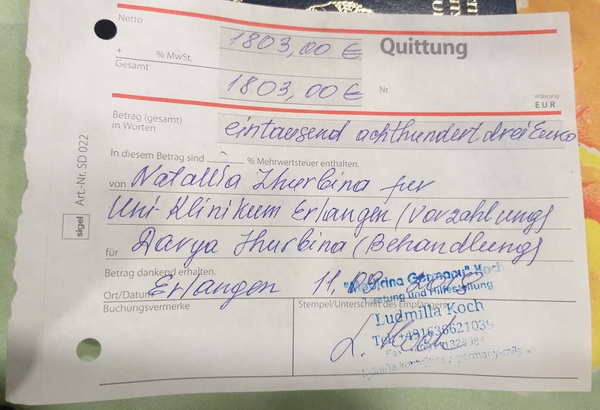 Netto
1803,00 €
Quittung
+ % MwSt.
Gesamt
1803,00 €
Nr.
Währung
EUR
Betrag (gesamt)
in Worten
eintausend achthundert drei Euro
In diesem Betrag sind % Mehrwertsteuer enthalten.
von Natallia Zhurbina fur
Uni-Klinikum Erlangen (Vorzahlung)
für Darya Zhurbina (Behandlung)
Betrag dankend erhalten.
Ort/Datum Erlangen 11.09.
Buchungsvermerke
Stempel/Unterschrift des Empfängers
Koch
Beratung und Hilfestellung
Ludmilla Koch
Tel. +491638621039
Fax
sigel
Art.-Nr. SD 022